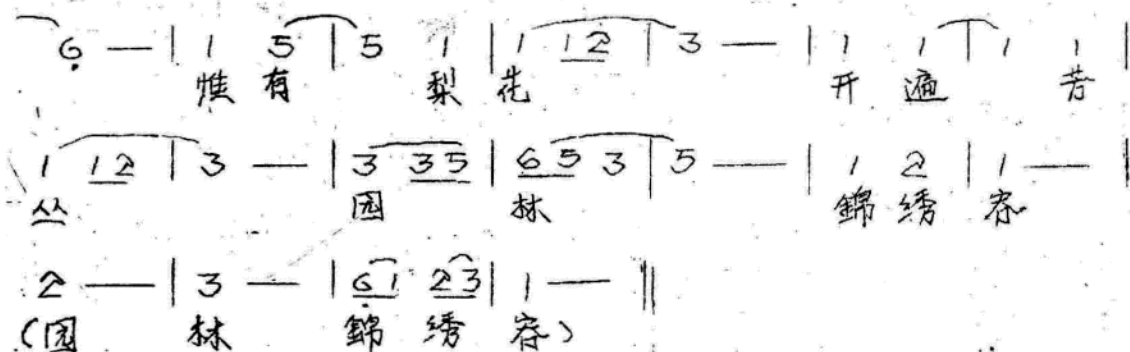 6 — | 1 5 | 5 1 | 1 12 | 3 — | 1 1 | 1 1 |
惟 有 梨 花 开 遍
1 12 | 3 — | 3 35 | 65 3 | 5 — | 1 2 | 1 — |
丛 园 林 錦 绣 春
2 — | 3 — | 61 23 | 1 — ‖
(园 林 錦 绣 春)